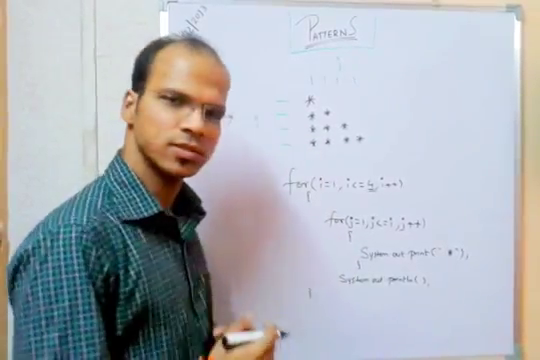 PATTERNS
*
* *
* * *
* * * *
for(i=1, i<=4, i++)
{
for(j=1, j<=i, j++)
{
System out print(" *"),
}
System out println( ),
}